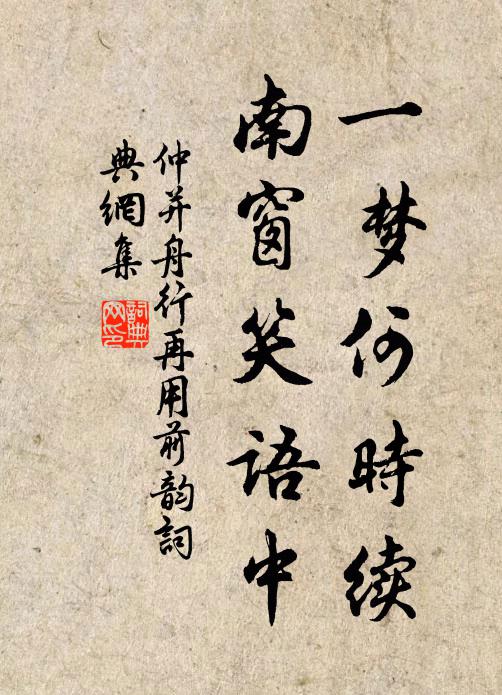 一梦何時续
南窗笑语中
仲并舟行再用前韵詞
典網集
詞典网印